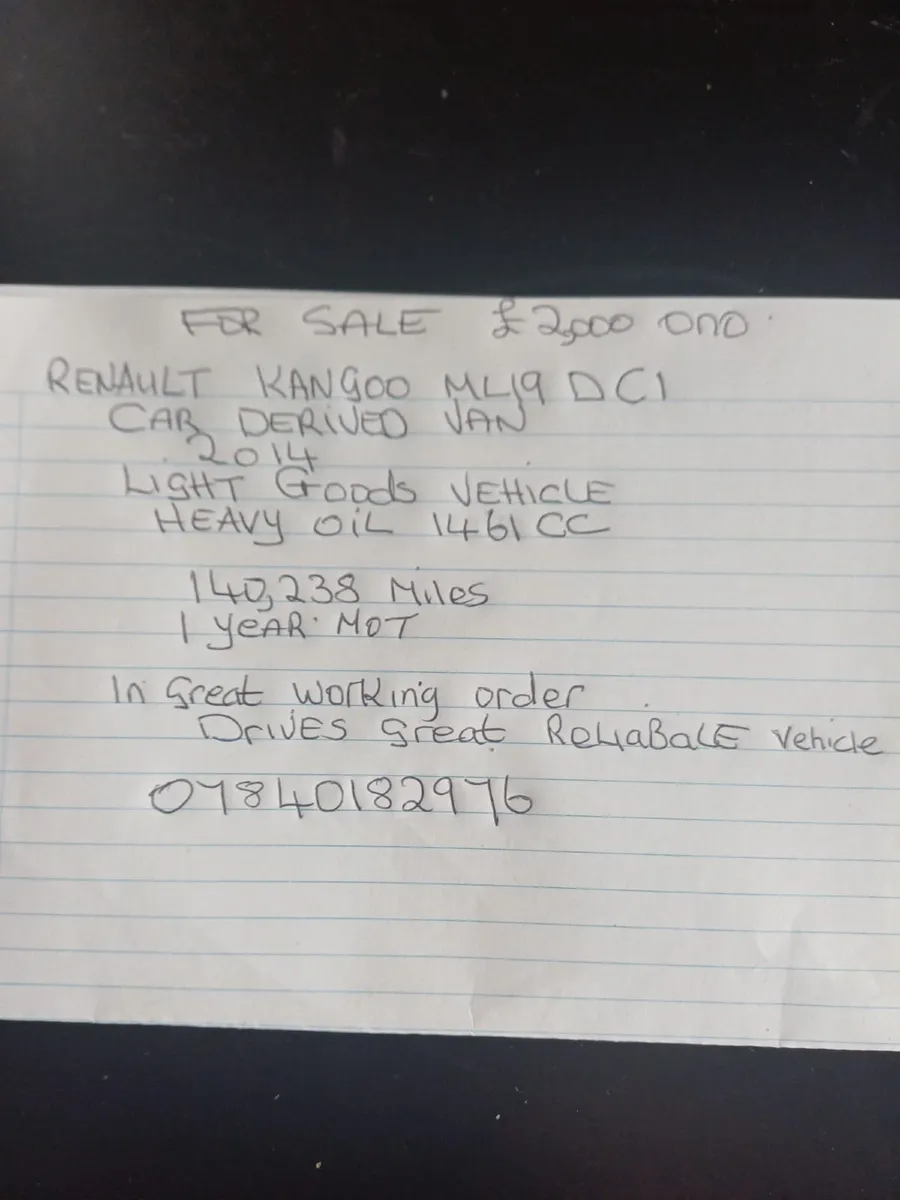 FOR SALE £2,000 ono
RENAULT KANGOO ML19 DCI
CAR DERIVED VAN
2014
LIGHT GOODS VEHICLE
HEAVY OIL 1461 CC
140,238 MILES
1 YEAR MOT
In great working order
DRIVES great RELIABALE vehicle
07840182976